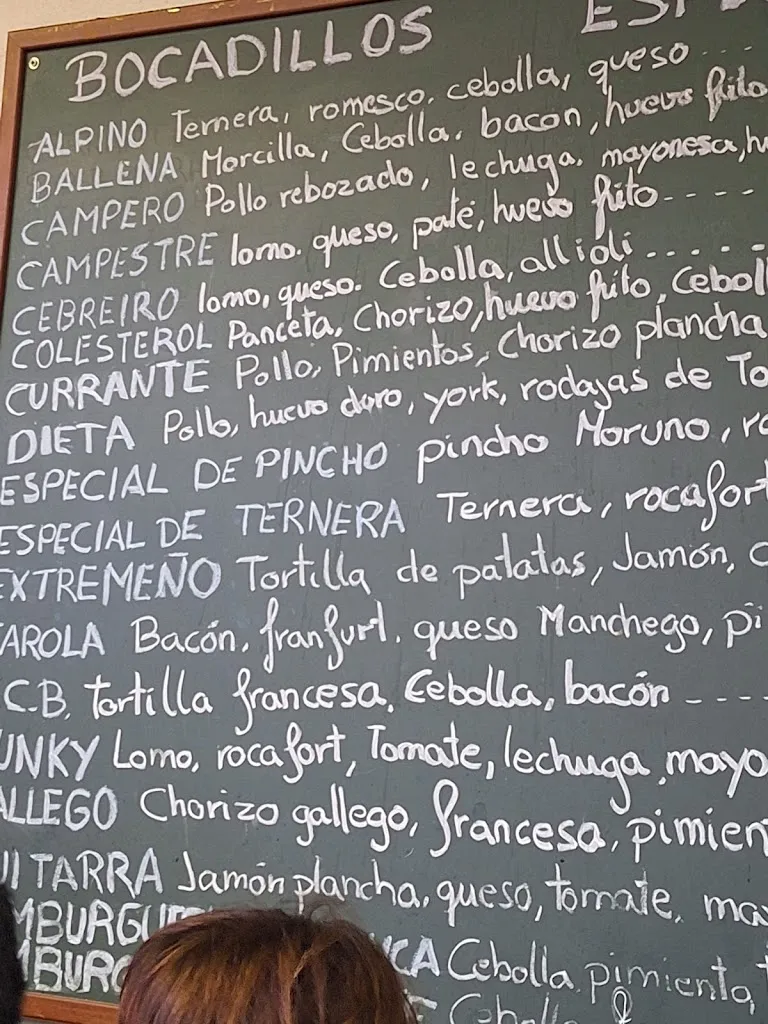 BOCADILLOS ESPE
ALPINO Ternera, romesco, cebolla, queso ....
BALLENA Morcilla, Cebolla, bacon, huevo frito
CAMPERO Pollo rebozado, lechuga, mayonesa, hu
CAMPESTRE lomo, queso, paté, huevo frito ----
CEBREIRO lomo, queso. Cebolla, allioli ......
COLESTEROL Panceta, Chorizo, huevo frito, Ceboll
CURRANTE Pollo, Pimientos, Chorizo plancha
DIETA Pollo, huevo duro, york, rodajas de To
ESPECIAL DE PINCHO pincho Moruno, ro
ESPECIAL DE TERNERA Ternera, rocafort
EXTREMEÑO Tortilla de patatas, Jamón, c
AROLA Bacón, franfurt, queso Manchego, pi
C.B. tortilla francesa, Cebolla, bacón ----
UNKY Lomo, rocafort, Tomate, lechuga, mayo
ALLEGO Chorizo gallego, francesa, pimien
UITARRA Jamón plancha, queso, tomate, may
MBURGUE CA Cebolla, pimiento, t
MBURG E Cebolla